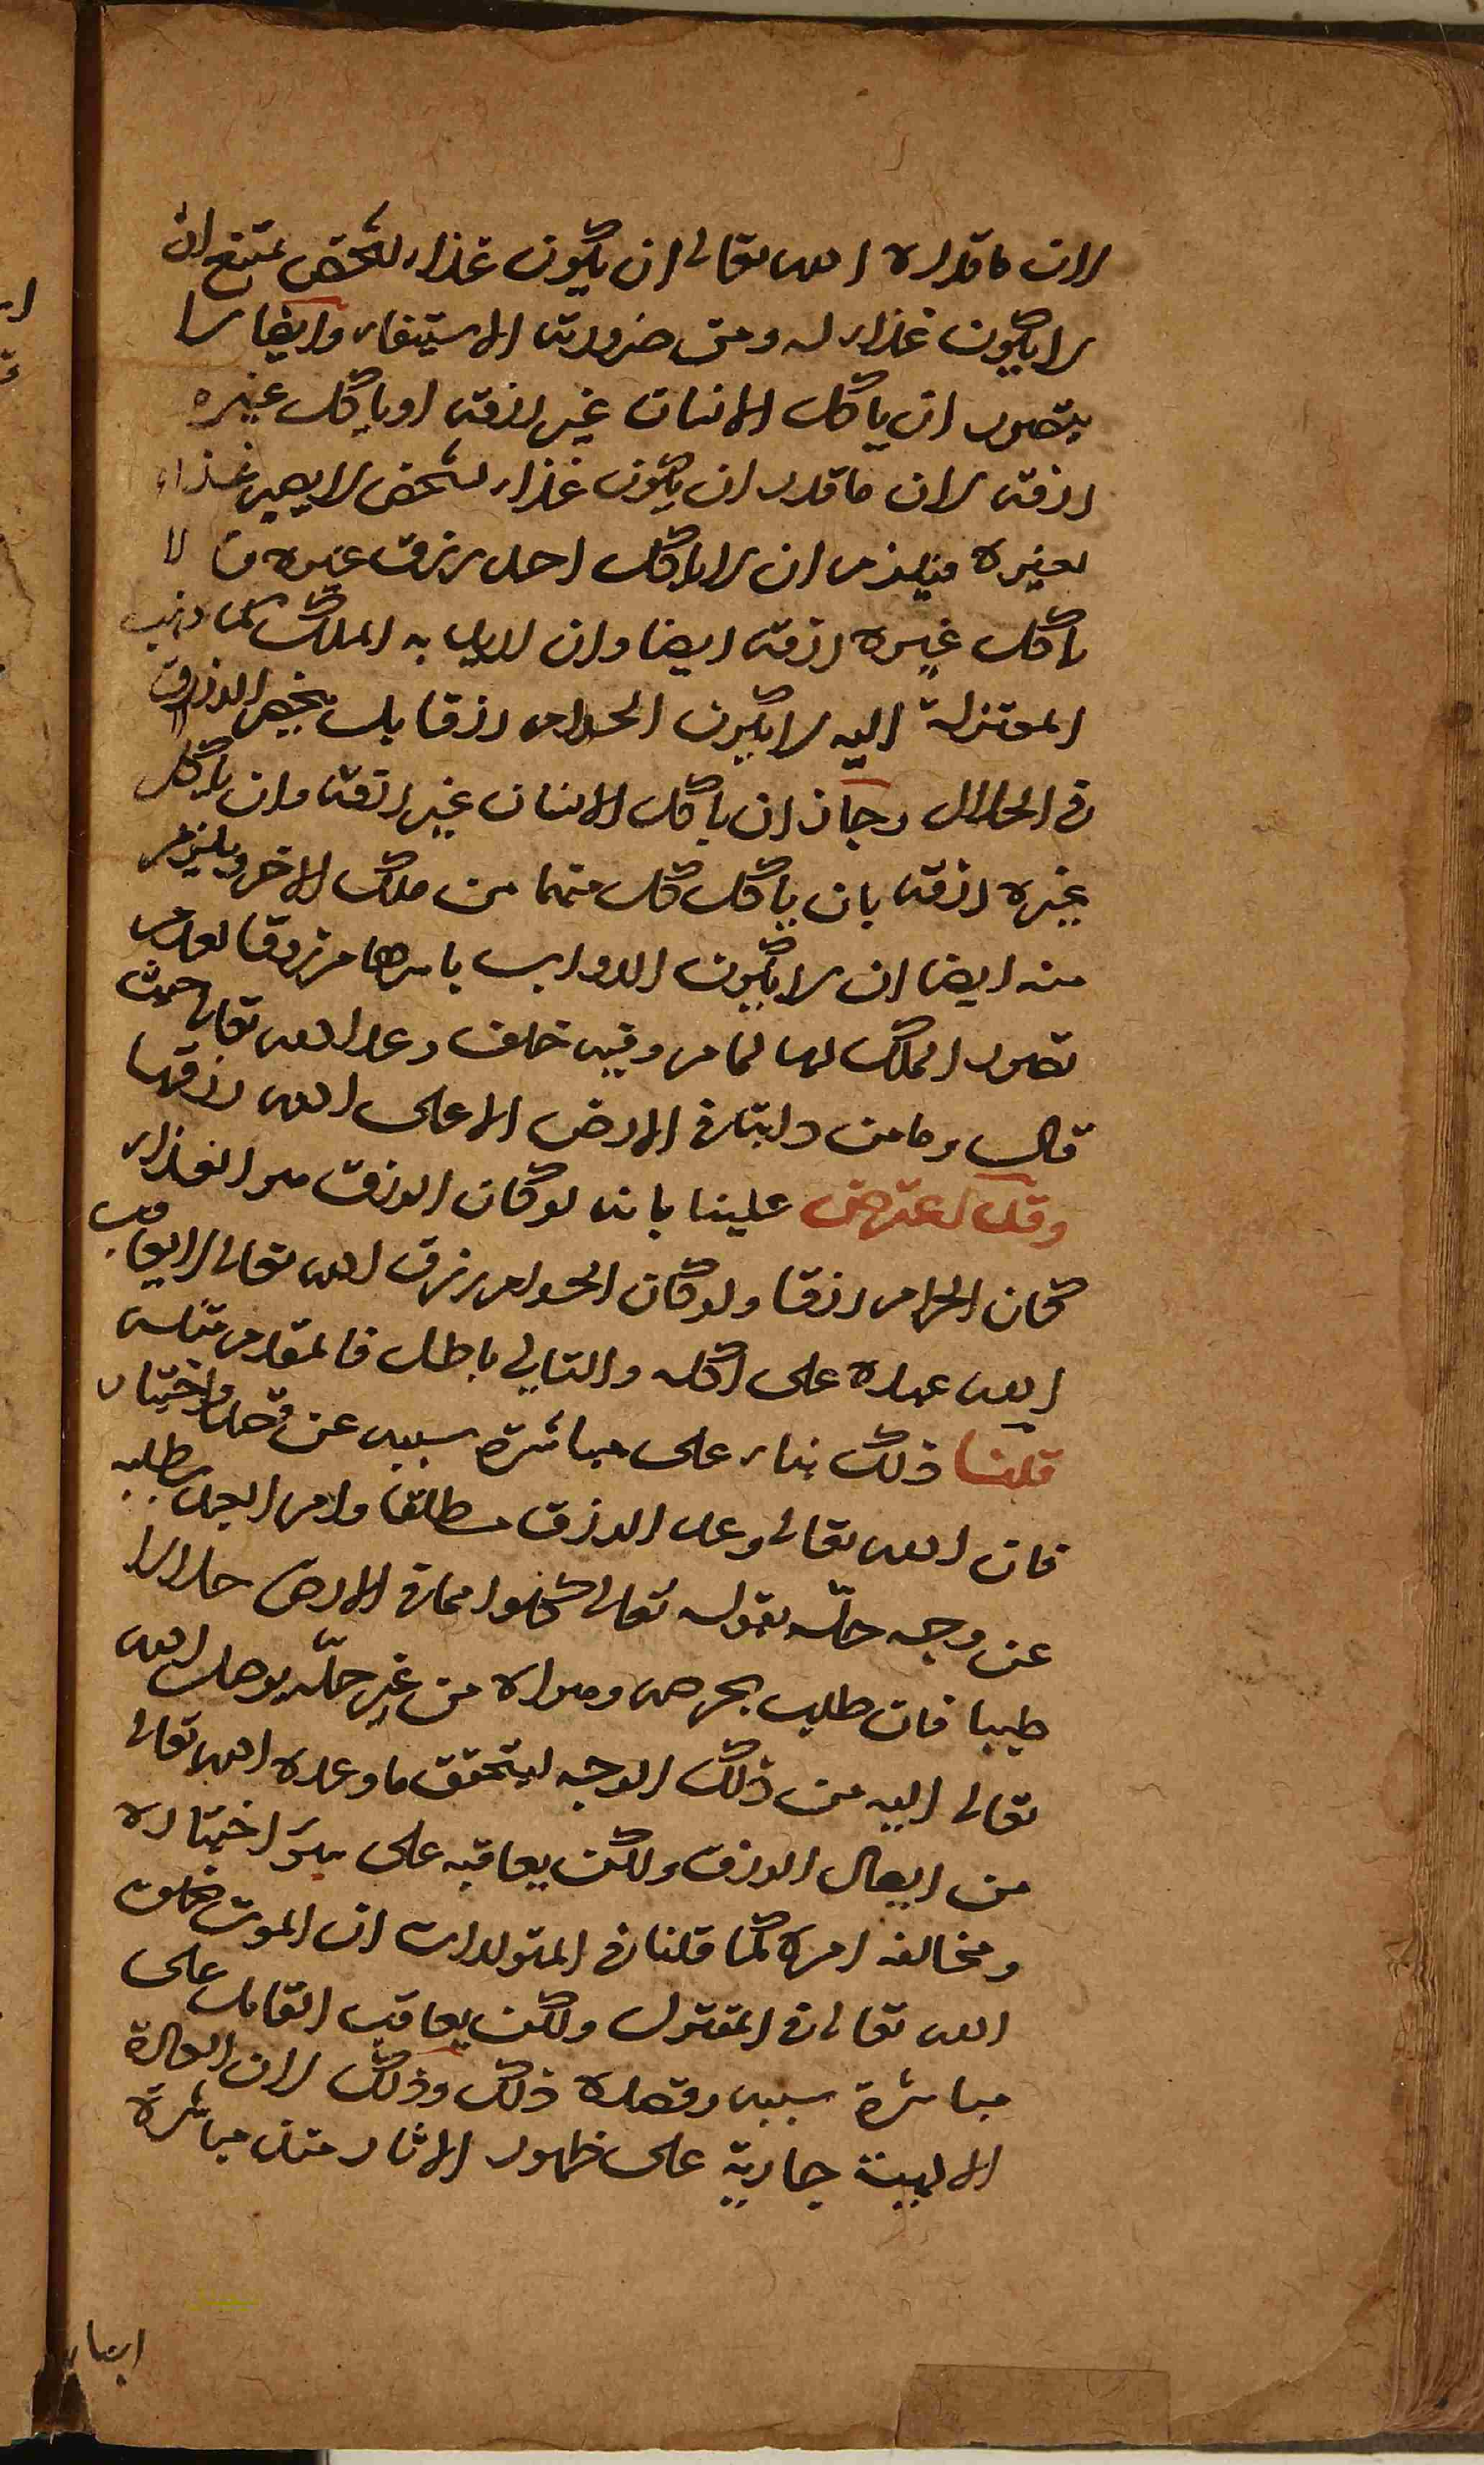 لان ما قدره الله تعالى ان يكون غذاء لشخص يمتنع ان
لا يكون غذاء له ومن ضرورته الاستيفاء وايضا لا
يتصور ان ياكل الانسان غير رزقه او ياكل غيره
رزقه لان ما قدر ان يكون غذاء لشخص لا يصير غذاء
لغيره فيلزم ان لا ياكل احد رزق غيره ولا
ياكل غيره رزقه ايضا وان اريد به الملك كما ذهب
المعتزلة اليه لا يكون الحرام رزقا بل يخص الرزق
في الحلال وجاز ان ياكل الانسان غير رزقه وان ياكل
غيره رزقه بان ياكل كل منهما من ملك الاخر ويلزم
منه ايضا ان لا يكون الدواب باسرها مرزوقا لعدم
تصور الملك لها لما مر وفيه خلف وعد الله تعالى حيث
قال وما من دابة في الارض الا على الله رزقها
وقد اعترض علينا بانه لو كان الرزق هو الغذاء
لكان الحرام رزقا ولو كان الحرام رزق الله تعالى لا يعاقب
الله عبده على اكله والتالي باطل فالمقدم مثله
قلنا ذلك بناء على مباشرة سببه عن قصد واختيار
فان الله تعالى وعد الرزق مطلقا وامر العبد بطلبه
عن وجه حله بقوله تعالى كلوا مما في الارض حلالا
طيبا فان طلب بحرصه وهواه من غير حله يوصل الله
تعالى اليه من ذلك الوجه ليتحقق ما وعده الله تعالى
من ايصال الرزق ولكن يعاقبه على سوء اختياره
ومخالفة امره كما قلنا في المتولدات ان الموت بخلق
الله تعالى في المقتول ولكن يعاقب القاتل على
مباشرة سببه وقصده ذلك وذلك لان العادة
الالهية جارية على ظهور الاثار عند مباشرة